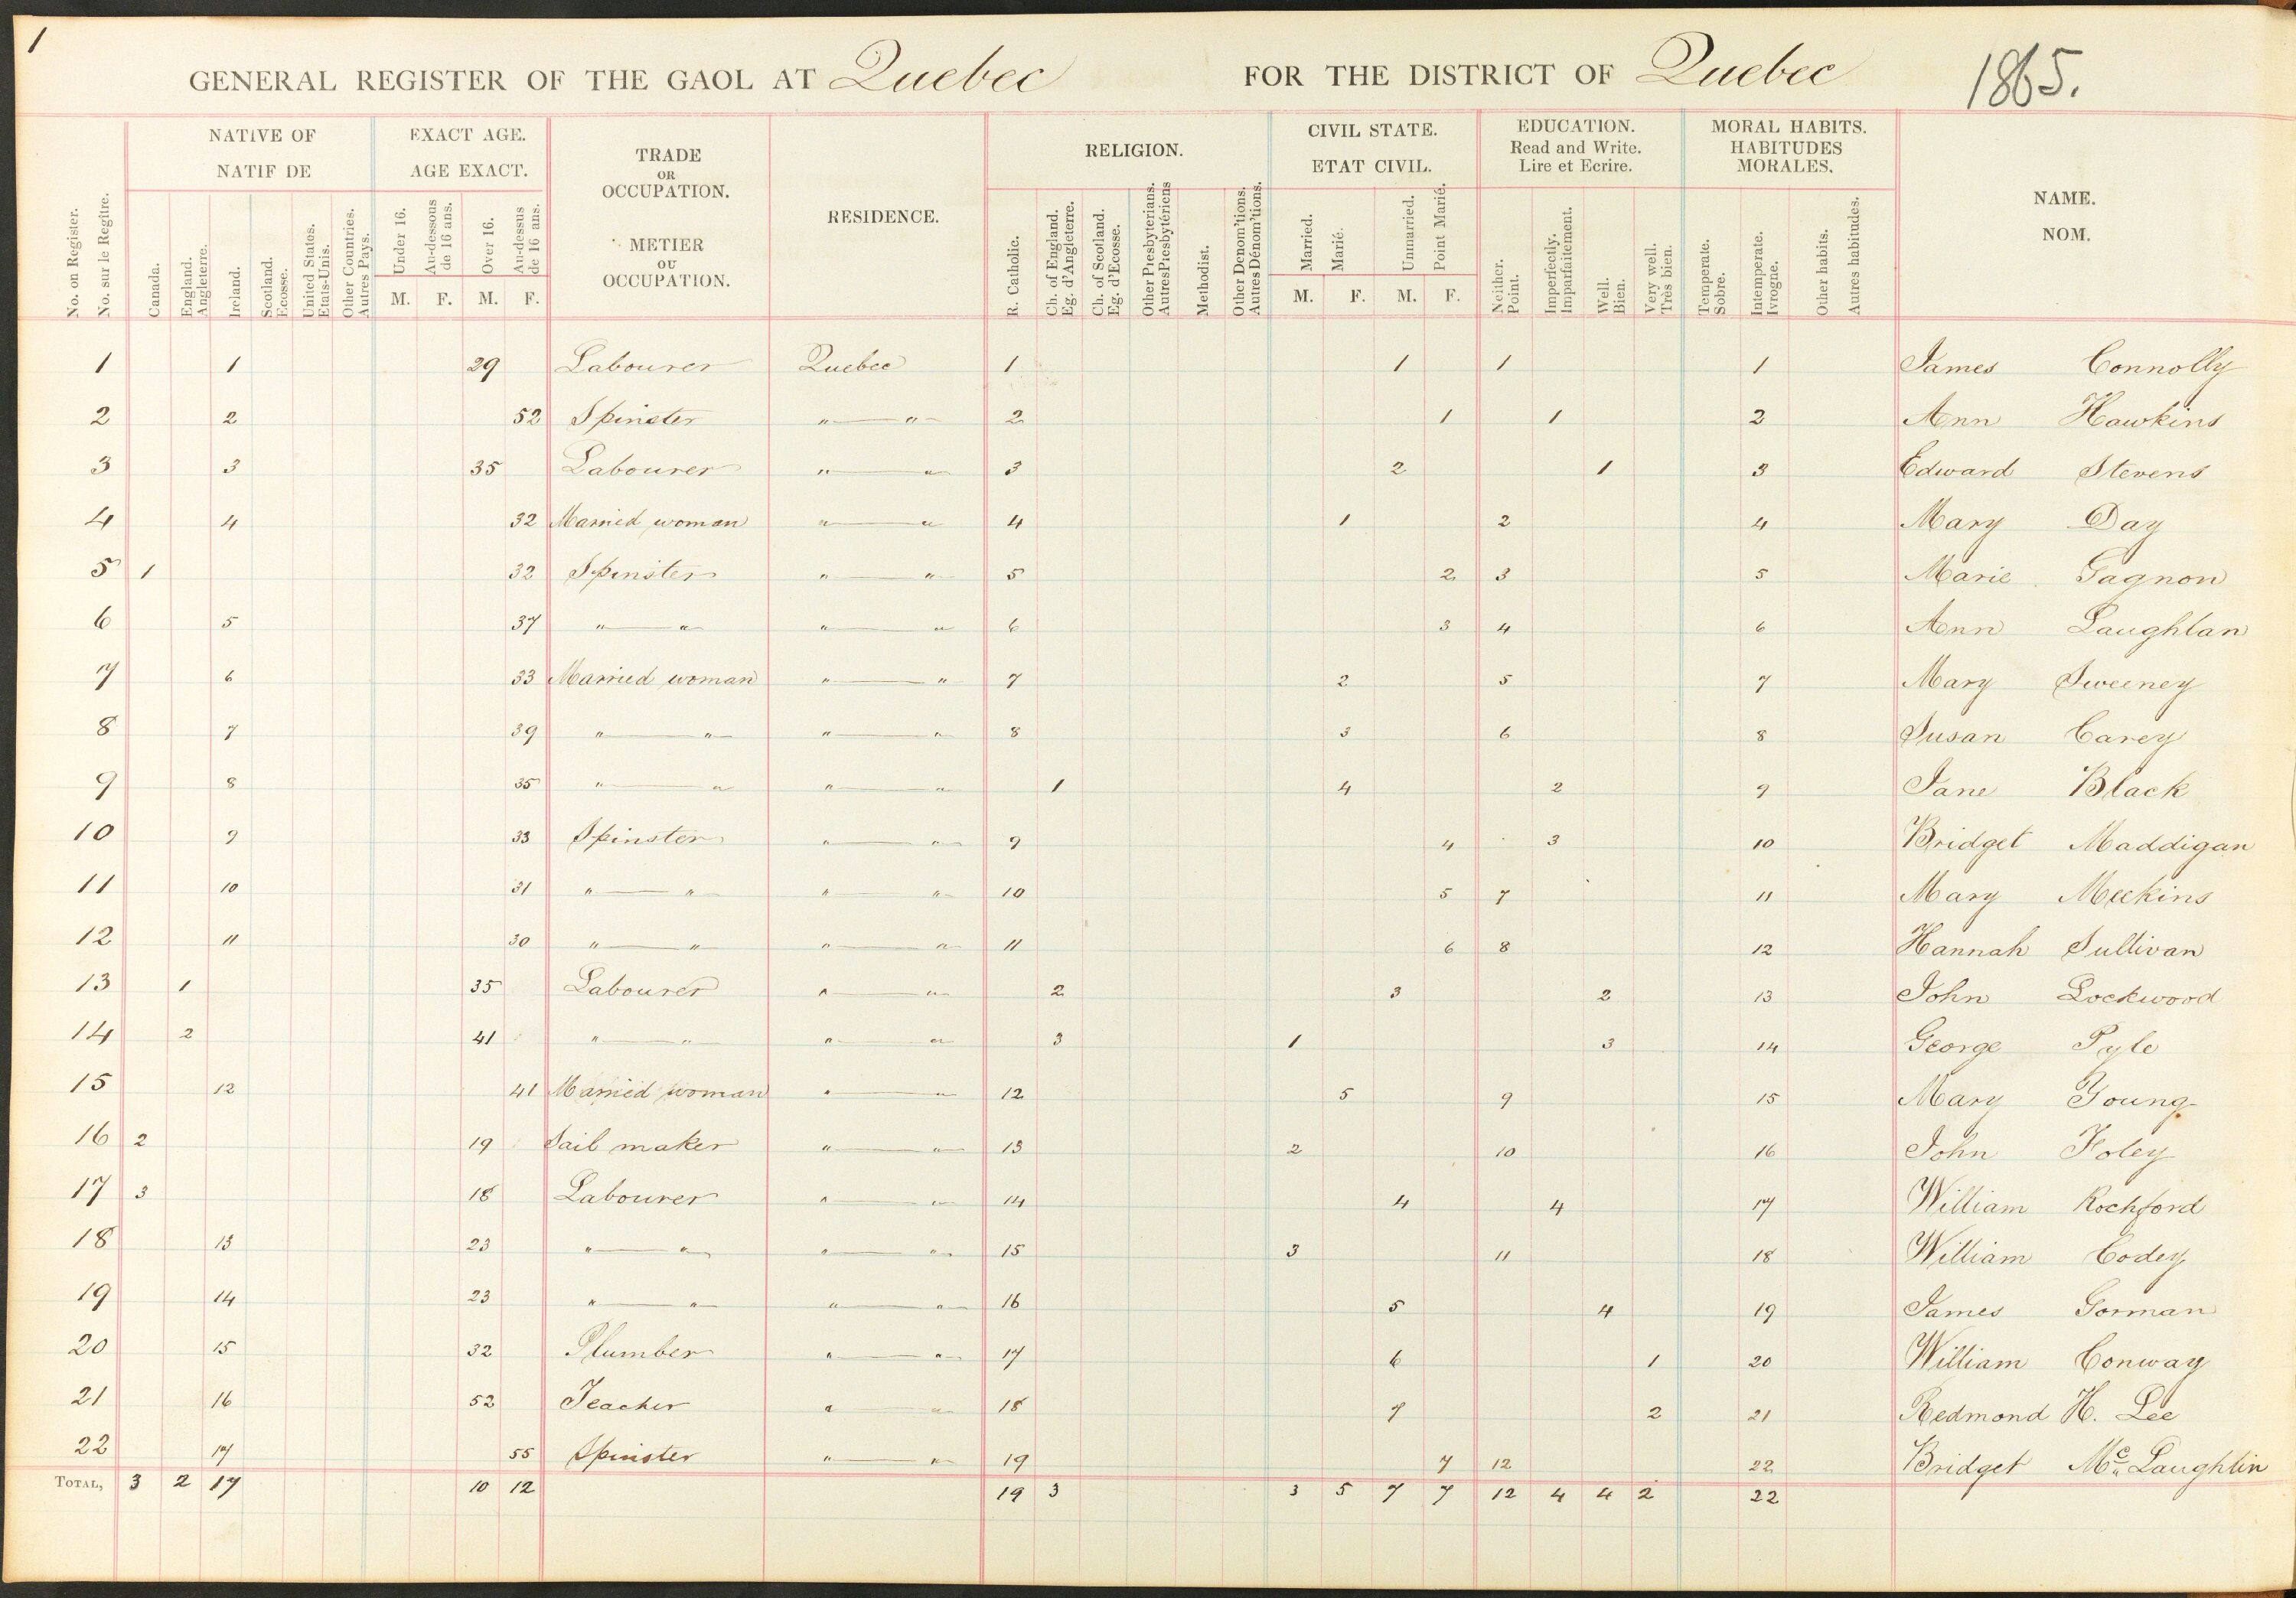 1
GENERAL REGISTER OF THE GAOL AT Quebec FOR THE DISTRICT OF Quebec 1865.
No. on Register. No. sur le Regître.
NATIVE OF NATIF DE
Canada. England. Angleterre. Ireland. Scotland. Ecosse. United States. Etats-Unis. Other Countries. Autres Pays.
EXACT AGE. AGE EXACT.
Under 16. Au-dessous de 16 ans. Over 16. Au-dessus de 16 ans.
M. F. M. F.
TRADE OR OCCUPATION. METIER OU OCCUPATION.
RESIDENCE.
RELIGION.
R. Catholic. Ch. of England. Eg. d'Angleterre. Ch. of Scotland. Eg. d'Ecosse. Other Presbyterians. Autres Presbytériens Methodist. Other Denom'tions. Autres Dénom'tions.
CIVIL STATE. ETAT CIVIL.
Married. Marié. Unmarried. Point Marié.
M. F. M. F.
EDUCATION. Read and Write. Lire et Ecrire.
Neither. Point. Imperfectly. Imparfaitement. Well. Bien. Very well. Très bien.
MORAL HABITS. HABITUDES MORALES.
Temperate. Sobre. Intemperate. Ivrogne. Other habits. Autres habitudes.
NAME. NOM.
1 1 29 Labourer Quebec 1 1 1 1 James Connolly
2 2 52 Spinster " " 2 1 1 2 Ann Hawkins
3 3 35 Labourer " " 3 2 1 3 Edward Stevens
4 4 32 Married woman " " 4 1 2 4 Mary Day
5 1 32 Spinster " " 5 2 3 5 Marie Gagnon
6 5 37 " " " " 6 3 4 6 Ann Laughlan
7 6 33 Married woman " " 7 2 5 7 Mary Sweeney
8 7 39 " " " " 8 3 6 8 Susan Carey
9 8 35 " " " " 1 4 2 9 Jane Black
10 9 33 Spinster " " 9 4 3 10 Bridget Maddigan
11 10 31 " " " " 10 5 7 11 Mary Meekins
12 11 30 " " " " 11 6 8 12 Hannah Sullivan
13 1 35 Labourer " " 2 3 2 13 John Lockwood
14 2 41 " " " " 3 1 3 14 George Pyle
15 12 41 Married woman " " 12 5 9 15 Mary Young
16 2 19 Sail maker " " 13 2 10 16 John Foley
17 3 18 Labourer " " 14 4 4 17 William Rochford
18 13 23 " " " " 15 3 11 18 William Codey
19 14 23 " " " " 16 5 4 19 James Gorman
20 15 32 Plumber " " 17 6 1 20 William Conway
21 16 52 Teacher " " 18 7 2 21 Redmond H. Lee
22 17 55 Spinster " " 19 7 12 22 Bridget Mc Laughlin
TOTAL, 3 2 17 10 12 19 3 3 5 7 7 12 4 4 2 22